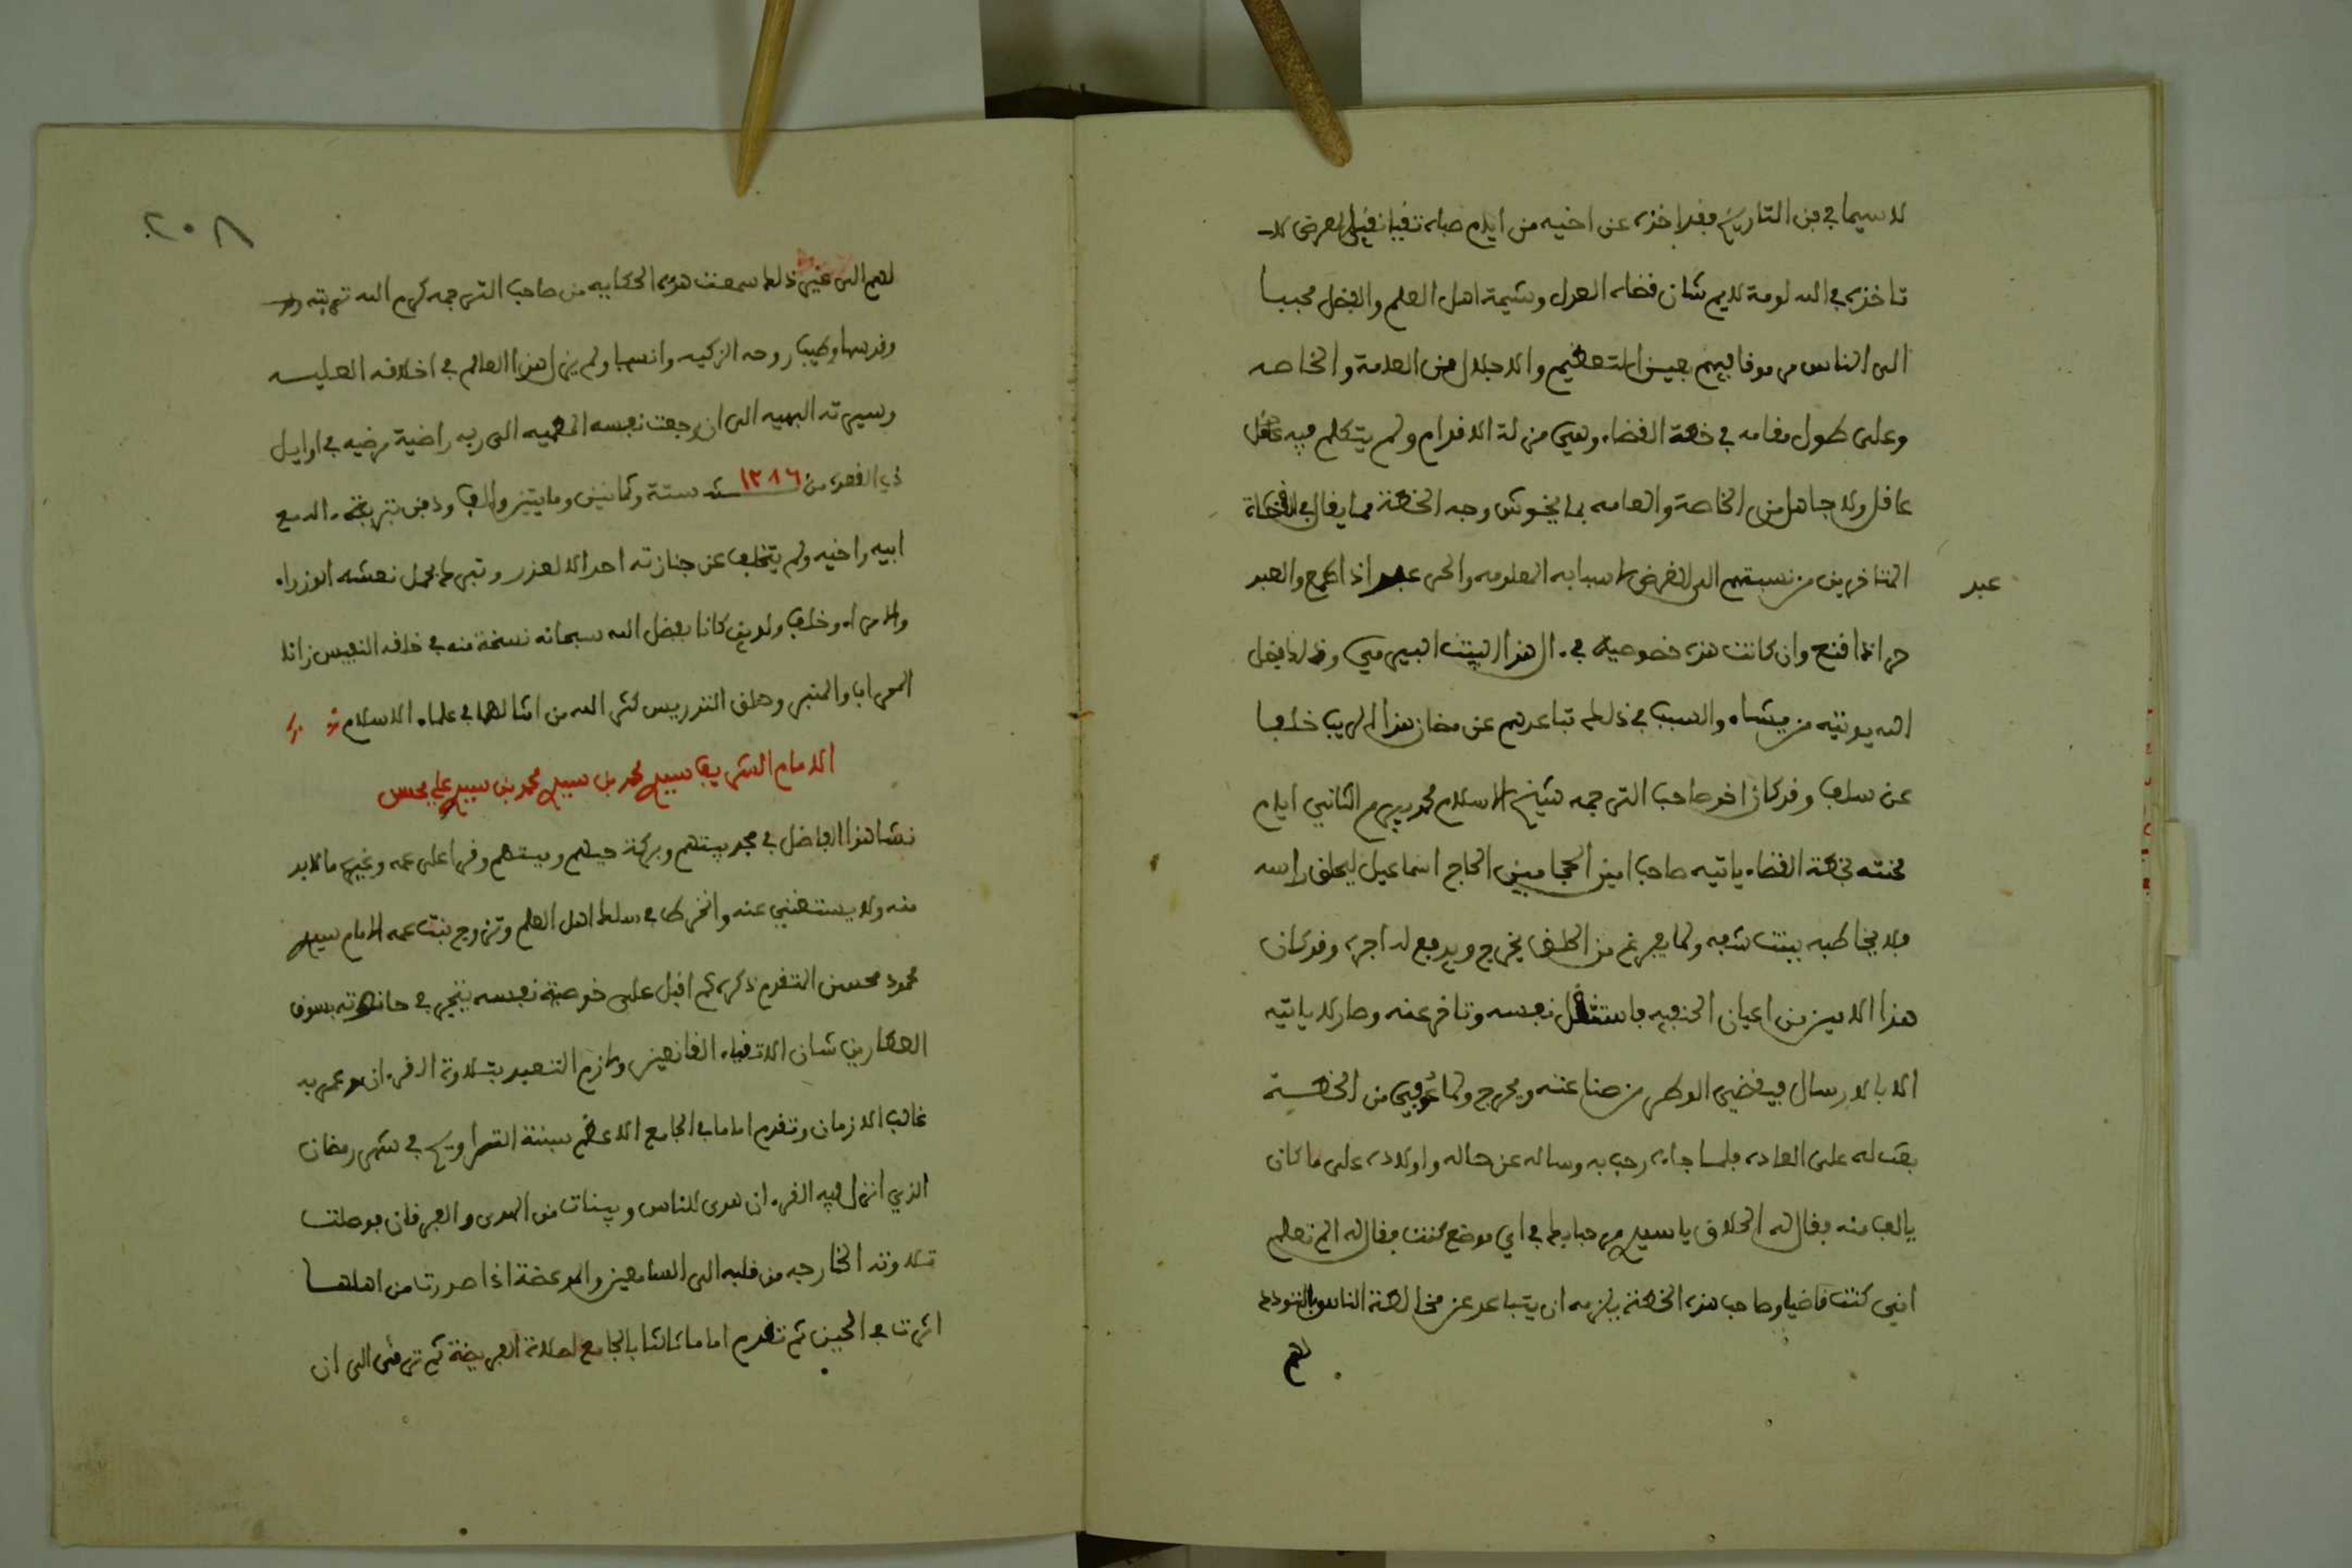 لا سيما في فن التاريخ فقد اخذه عن اخيه من ايام صباه تقيا نقي العرض لا
تاخذه في الله لومة لايم شان قضاه العدل وشيمة اهل العلم والفضل محببا
الى الناس مرموقا بينهم بعين التعظيم والاجلال من العامة والخاصه
وعلى طول مقامه في خطة القضاء وهي مزلة الاقدام ولم يتكلم فيه
عاقل ولا جاهل من الخاصة والعامه بما يخدش وجه الخطة مما يقال في القضاة
المتاخرين من نسبتهم الى الغرض لاسبابه المعلومه والحر عبد اذا طمع والعبد
عبد
حر اذا قنع وان كانت هذه خصوصية في ءال هذا البيت البيرمي وذلك فضل
الله يوتيه من يشاء والسبب في ذلك تباعدهم عن مضان هذا الريب خلفا
عن سلف وقد كان اخو صاحب الترجمه شيخ الاسلام محمد بيرم الثاني ايام
محنته بخطة القضاء ياتيه صاحب امين الحجامين الحاج اسماعيل ليحلق راسه
فلا يخاطبه ببنت شفه ولما يفرغ من الحلق يخرج ويدفع له اجره وقد كان
هذا الامين من اعيان الحنفيه فاستثقل نفسه وتاخر عنه وصار لا ياتيه
الا بالارسال فيقضي الوطر من صناعته ويخرج ولما عوفي من الخطة
بعث له على العاده فلما جاءه رحب به وساله عن حاله واولاده على ما كان
يالف منه فقال له الحلاق يا سيدي مرحبا بك في اي موضع كنت فقال له الم تعلم
اني كنت قاضيا وصاحب هذه الخطة يلزمه ان يتباعد عن مخالطة الناس بالتودد
لهم
٢٠٨
لهم الى غير ذلك سمعت هذه الحكايه من صاحب الترجمه كرم الله تربته
وقدسها وطيب روحه الزكيه وانسها ولم يزل هذا العالم في اخلاقه العليه
وسيرته البهيه الى ان رجعت نفسه المطمئنه الى ربه راضية مرضيه في اوايل
ذي القعده من ١٢٨٦ سنة ستة وثمانين ومايتين والف ودفن بتربة ءاله مع
ابيه واخيه ولم يتخلف عن جنازته احد الا لعذر وتبرك بحمل نعشه الوزراء
والامراء وخلف ولدين كانا بفضل الله سبحانه نسخة منه في خلقه النفيس زانا
المحراب والمنبر وحلق التدريس كثر الله من امثالهما في علماء الاسلام
الامام الشريف سيدي محمد بن سيدي محمد بن سيدي علي محسن
نشا هذا الفاضل في مجد بيتهم وبركة حيهم وميتهم وقرا على عمه وغيره ما لابد
منه ولا يستغني عنه وانخرط في سلك اهل العلم وتزوج بنت عمه الامام سيدي
محمود محسن المتقدم ذكره ثم اقبل على خويصة نفسه يتجر في حانوته بسوق
العطارين شان الاتقياء القانعين ولازم التعبد بتلاوة القرءان وعمر به
غالب الازمان وتقدم اماما في الجامع الاعظم بسنة التراويح في شهر رمضان
الذي انزل فيه القرءان هدى للناس وبينات من الهدى والفرقان فوصلت
تلاوته الخارجه من قلبه الى السامعين والموعظة اذا صدرت من اهلها
اثرت في الحين ثم تقدم اماما ثالثا بالجامع لصلاة الفريضة ثم ترقى الى ان